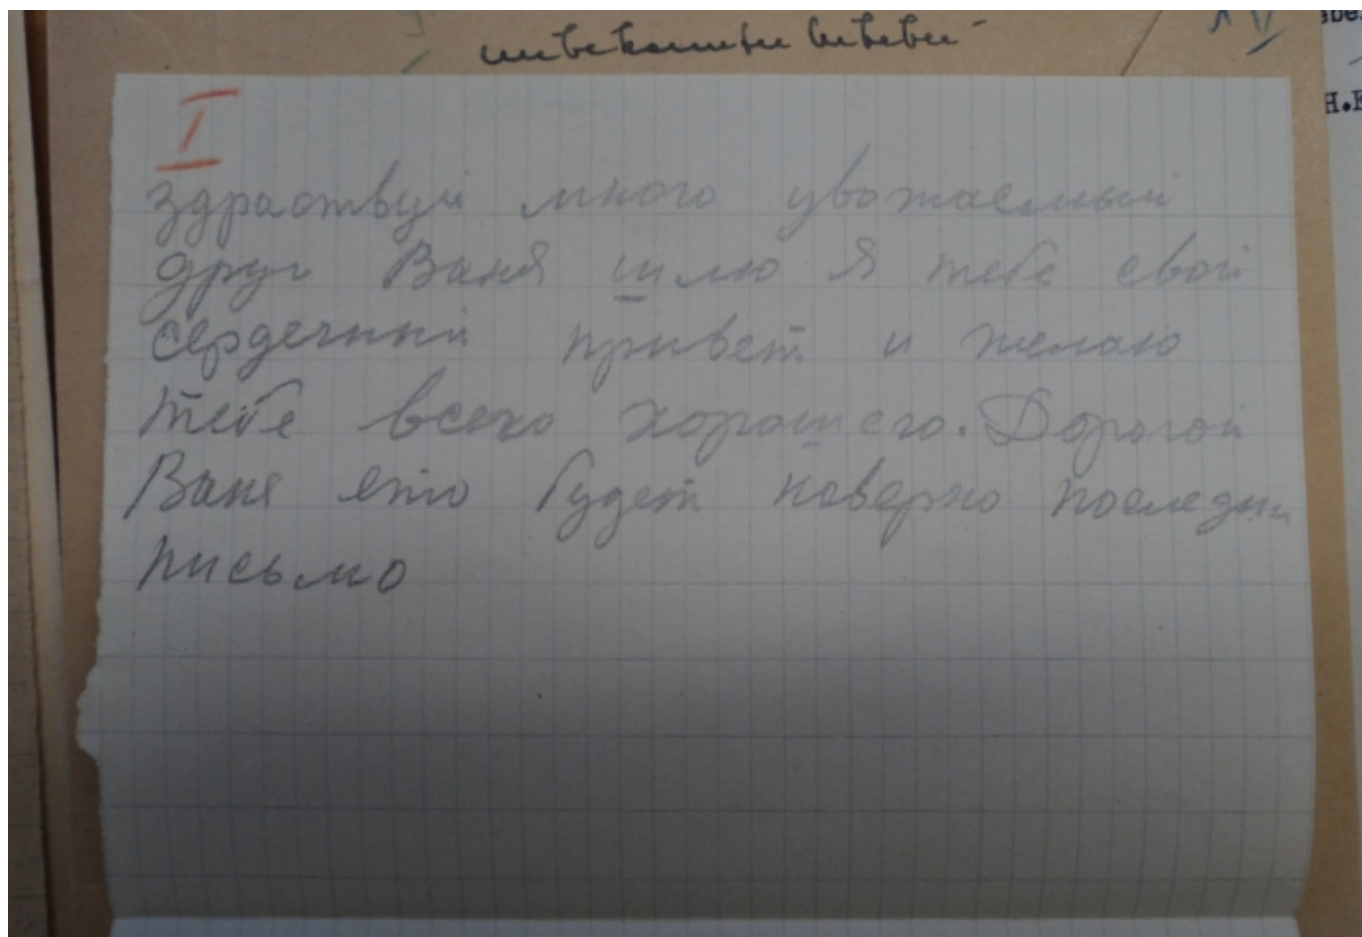 I
здраствуй много уважаемый
друг Ваня шлю я тебе свой
сердечный привет и желаю
тебе всего хорошего. Дорогой
Ваня ето будет наверно последни
письмо
Н.К